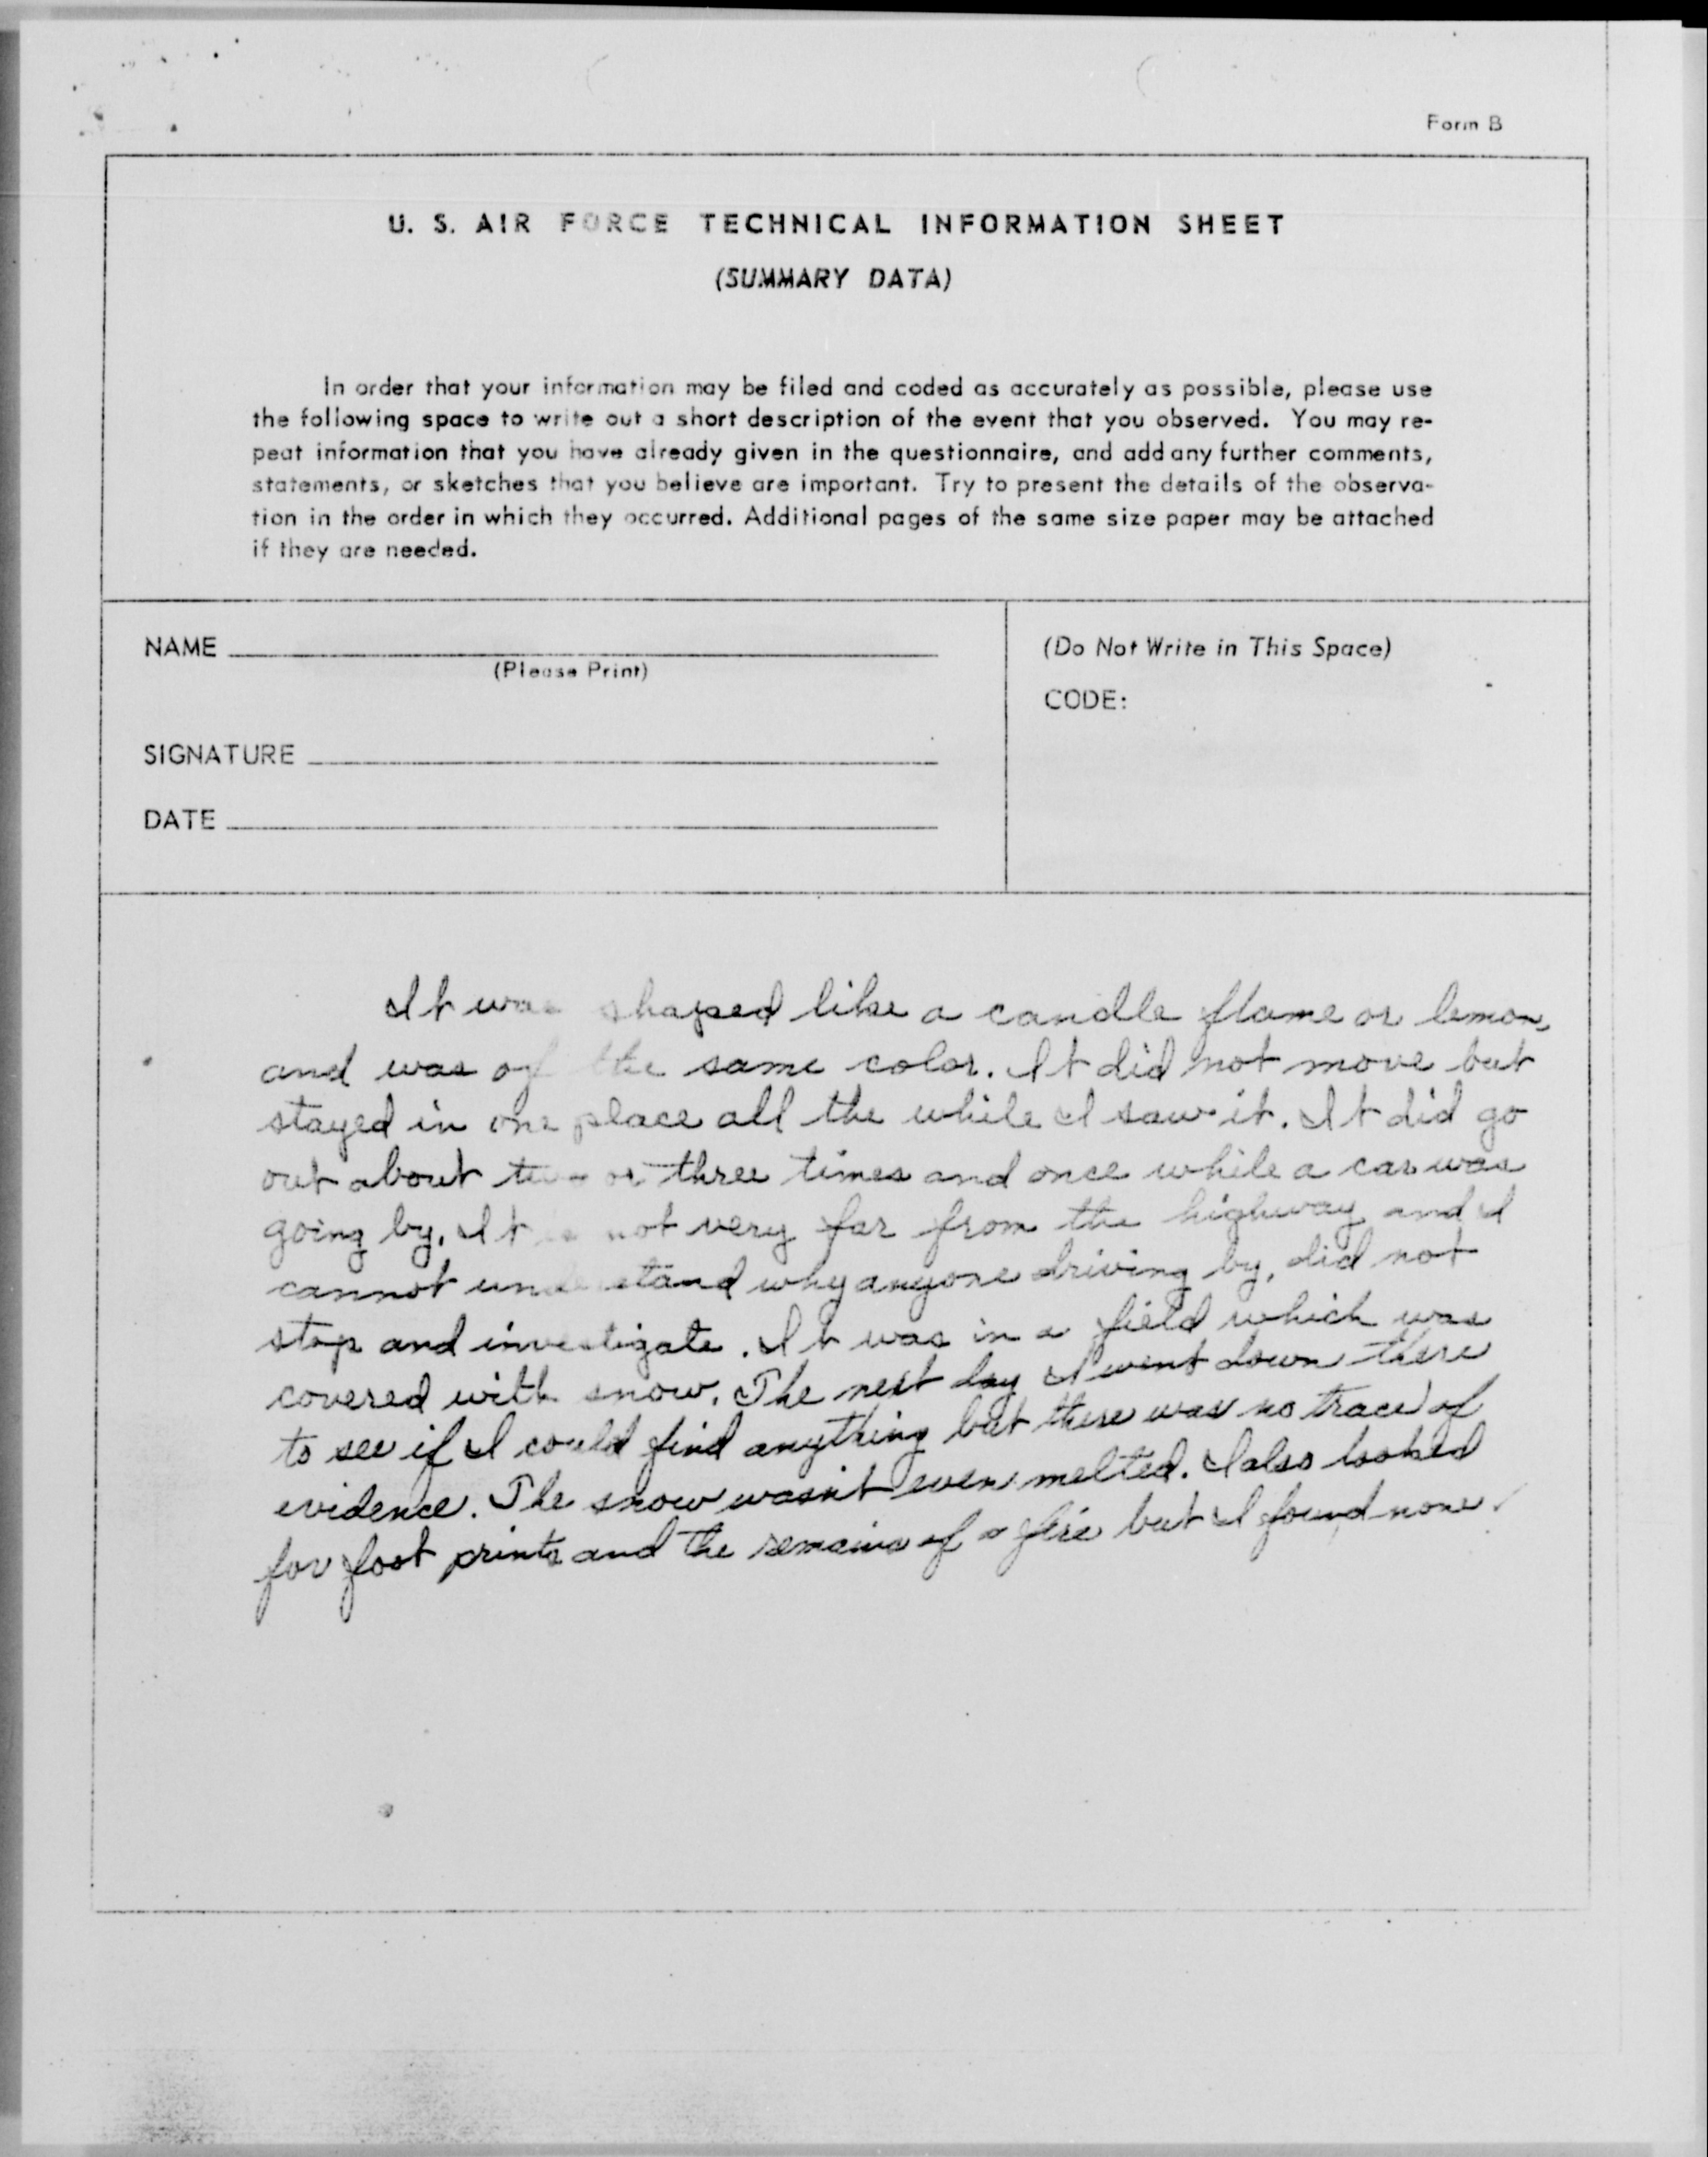 Form B
U. S. AIR FORCE TECHNICAL INFORMATION SHEET
(SUMMARY DATA)
In order that your information may be filed and coded as accurately as possible, please use
the following space to write out a short description of the event that you observed. You may re-
peat information that you have already given in the questionnaire, and add any further comments,
statements, or sketches that you believe are important. Try to present the details of the observa-
tion in the order in which they occurred. Additional pages of the same size paper may be attached
if they are needed.
NAME
(Please Print)
SIGNATURE
DATE
(Do Not Write in This Space)
CODE:
It was shaped like a candle flame or lemon,
and was of the same color. It did not move but
stayed in one place all the while I saw it. It did go
out about two or three times and once while a car was
going by. It is not very far from the highway and I
cannot understand why anyone driving by, did not
stop and investigate. It was in a field which was
covered with snow. The next day I went down there
to see if I could find anything but there was no trace of
evidence. The snow wasn't even melted. I also looked
for foot prints and the remains of a fire but I found none.